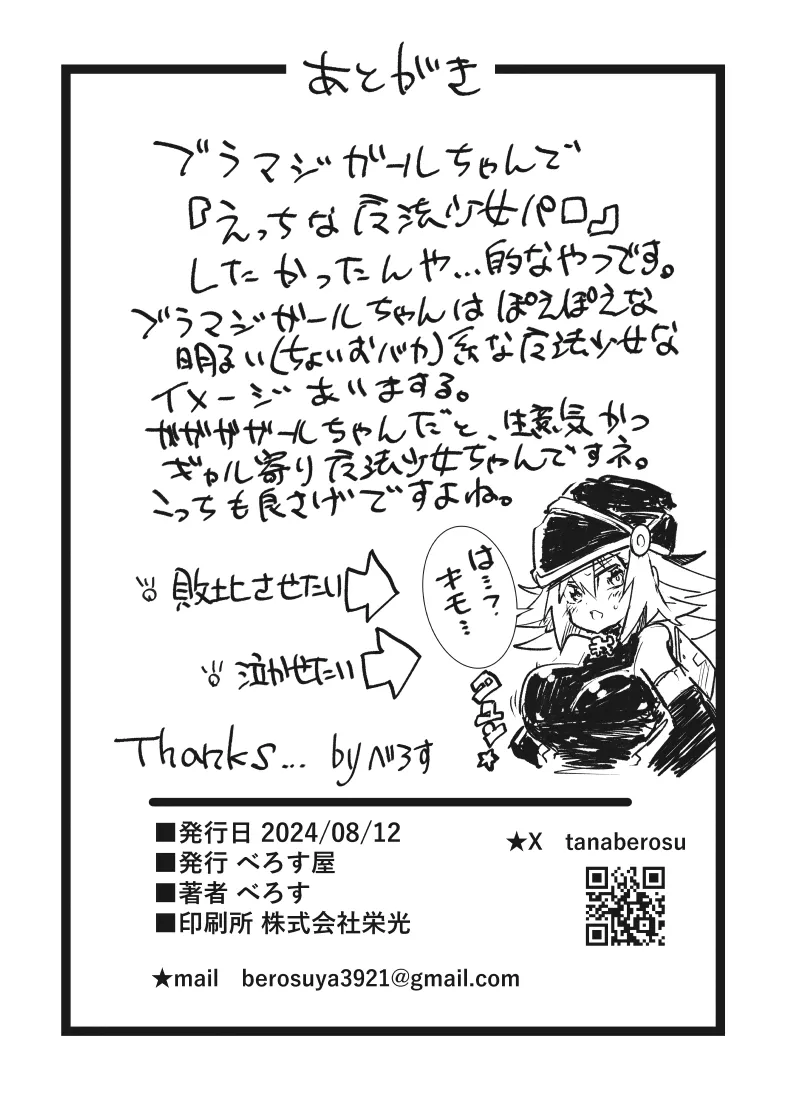 あとがき
ブラマジガールちゃんで
『えっちな魔法少女パロ』
したかったんや…的なやつです。
ブラマジガールちゃんは ぽえぽえな
明るい(ちょいおバカ)系な魔法少女な
イメージ あいまする。
ガガガガールちゃんだと、生意気かつ
ギャル寄り魔法少女ちゃんですネ。
こっちも良さげですよね。
敗北させたい
泣かせたい
は…?
キモ…
Thanks... by べろす
■発行日 2024/08/12
■発行 べろす屋
■著者 べろす
■印刷所 株式会社栄光
★X tanaberosu
★mail berosuya3921@gmail.com